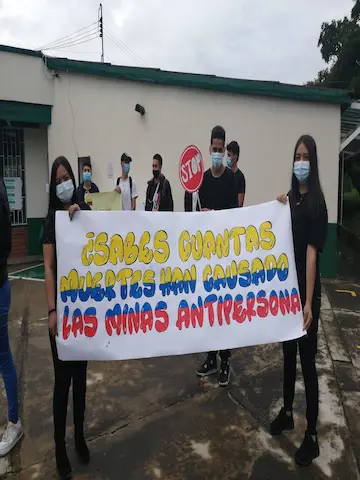 STOP
¿SABES CUANTAS
MUERTES HAN CAUSADO
LAS MINAS ANTIPERSONA